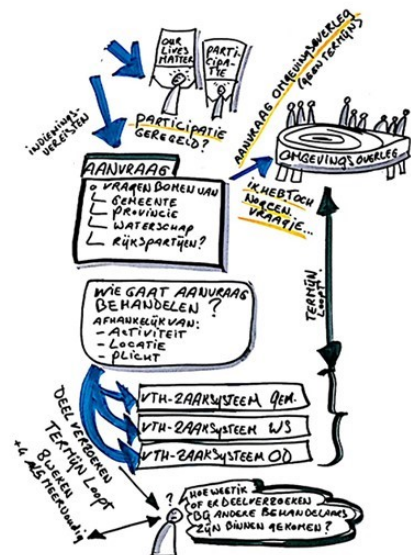 OUR
LIVES
MATTER
PARTI-
CIPA-
TIE
INDIENINGS-
VEREISTEN
PARTICIPATIE
GEREGELD?
AANVRAAG OMGEVINGSOVERLEG
(GEEN TERMIJN)
OMGEVINGSOVERLEG
IK HEB TOCH
NOG EEN
VRAAGJE...
AANVRAAG
VRAGENBOMEN VAN
GEMEENTE
PROVINCIE
WATERSCHAP
RIJKSPARTIJEN?
TERMIJN
LOOPT
WIE GAAT AANVRAAG
BEHANDELEN?
AFHANKELIJK VAN:
- ACTIVITEIT
- LOCATIE
- PLICHT
VTH-ZAAKSYSTEEM GEM.
VTH-ZAAKSYSTEEM WS
VTH-ZAAKSYSTEEM OD
DEELVERZOEKEN
TERMIJN LOOPT
8 WEKEN
+4 ALS MEERVOUDIG
?
HOE WEET IK
OF ER DEELVERZOEKEN
BIJ ANDERE BEHANDELAARS
ZIJN BINNENGEKOMEN?